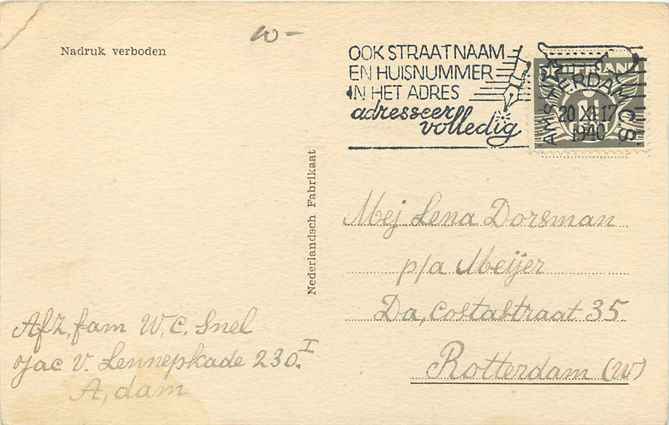 Nadruk verboden
w-
OOK STRAATNAAM
EN HUISNUMMER
IN HET ADRES
adresseer
volledig
NEDERLAND
AMSTERDAM C.S.
20 XI 17
1940
Nederlandsch Fabrikaat
Mej Lena Dorsman
p/a Meijer
Da, costastraat 35
Rotterdam (W)
Afz, fam W, C, Snel
Jac v. Lennepkade 230. I
A, dam